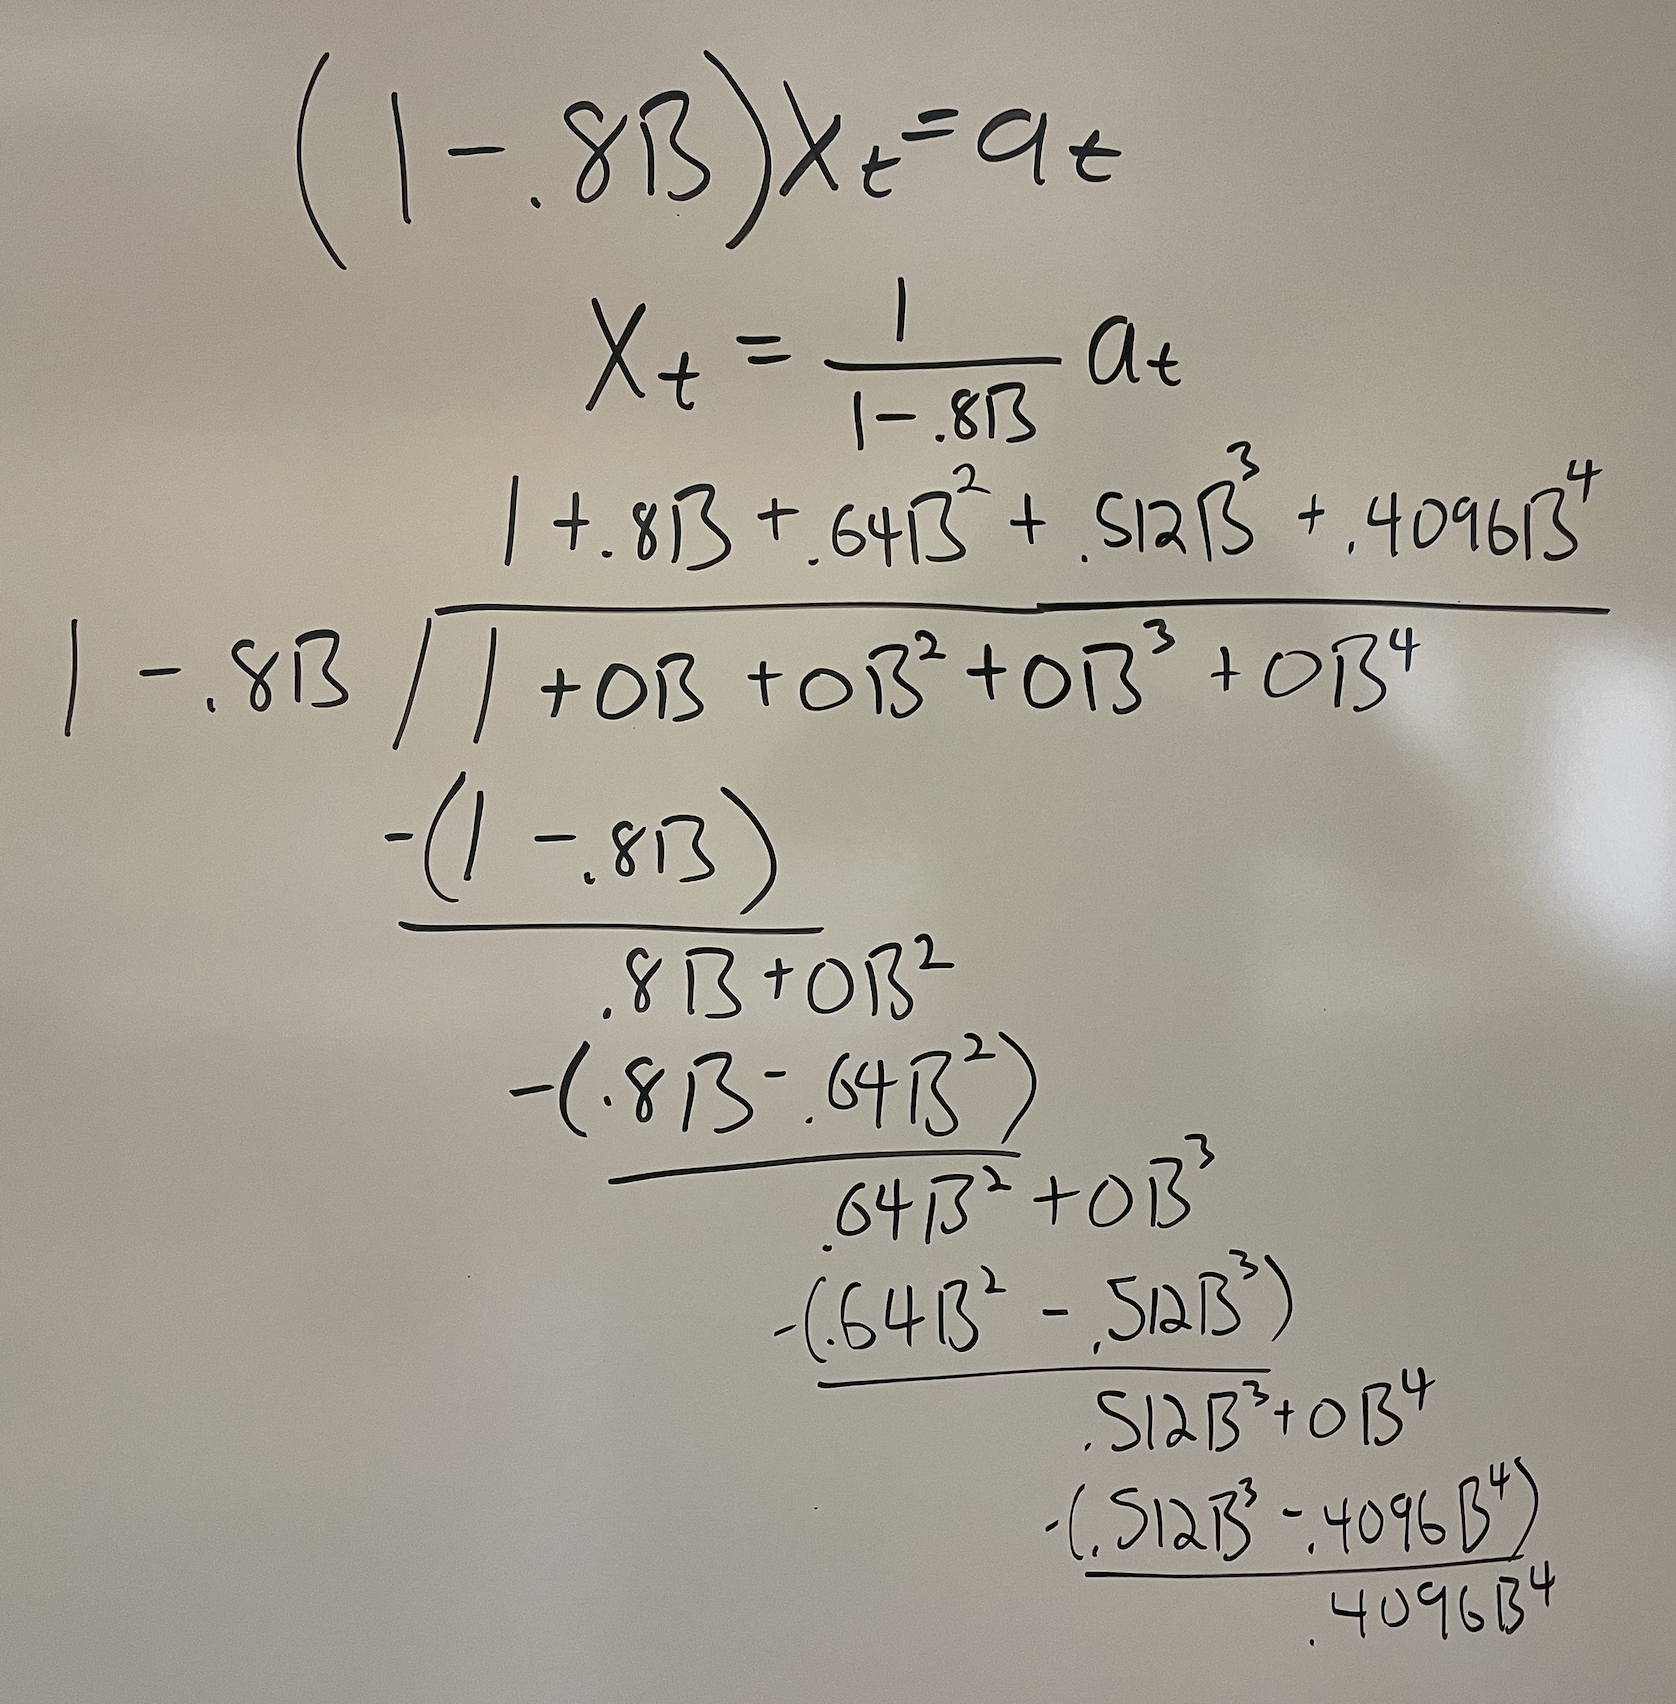 (1-.8B)Xₜ=aₜ
Xₜ = 1/(1-.8B) aₜ
1+.8B+.64B²+.512B³+.4096B⁴
1-.8B / 1+0B+0B²+0B³+0B⁴
-(1-.8B)
.8B+0B²
-(.8B-.64B²)
.64B²+0B³
-(.64B²-.512B³)
.512B³+0B⁴
-(.512B³-.4096B⁴)
.4096B⁴